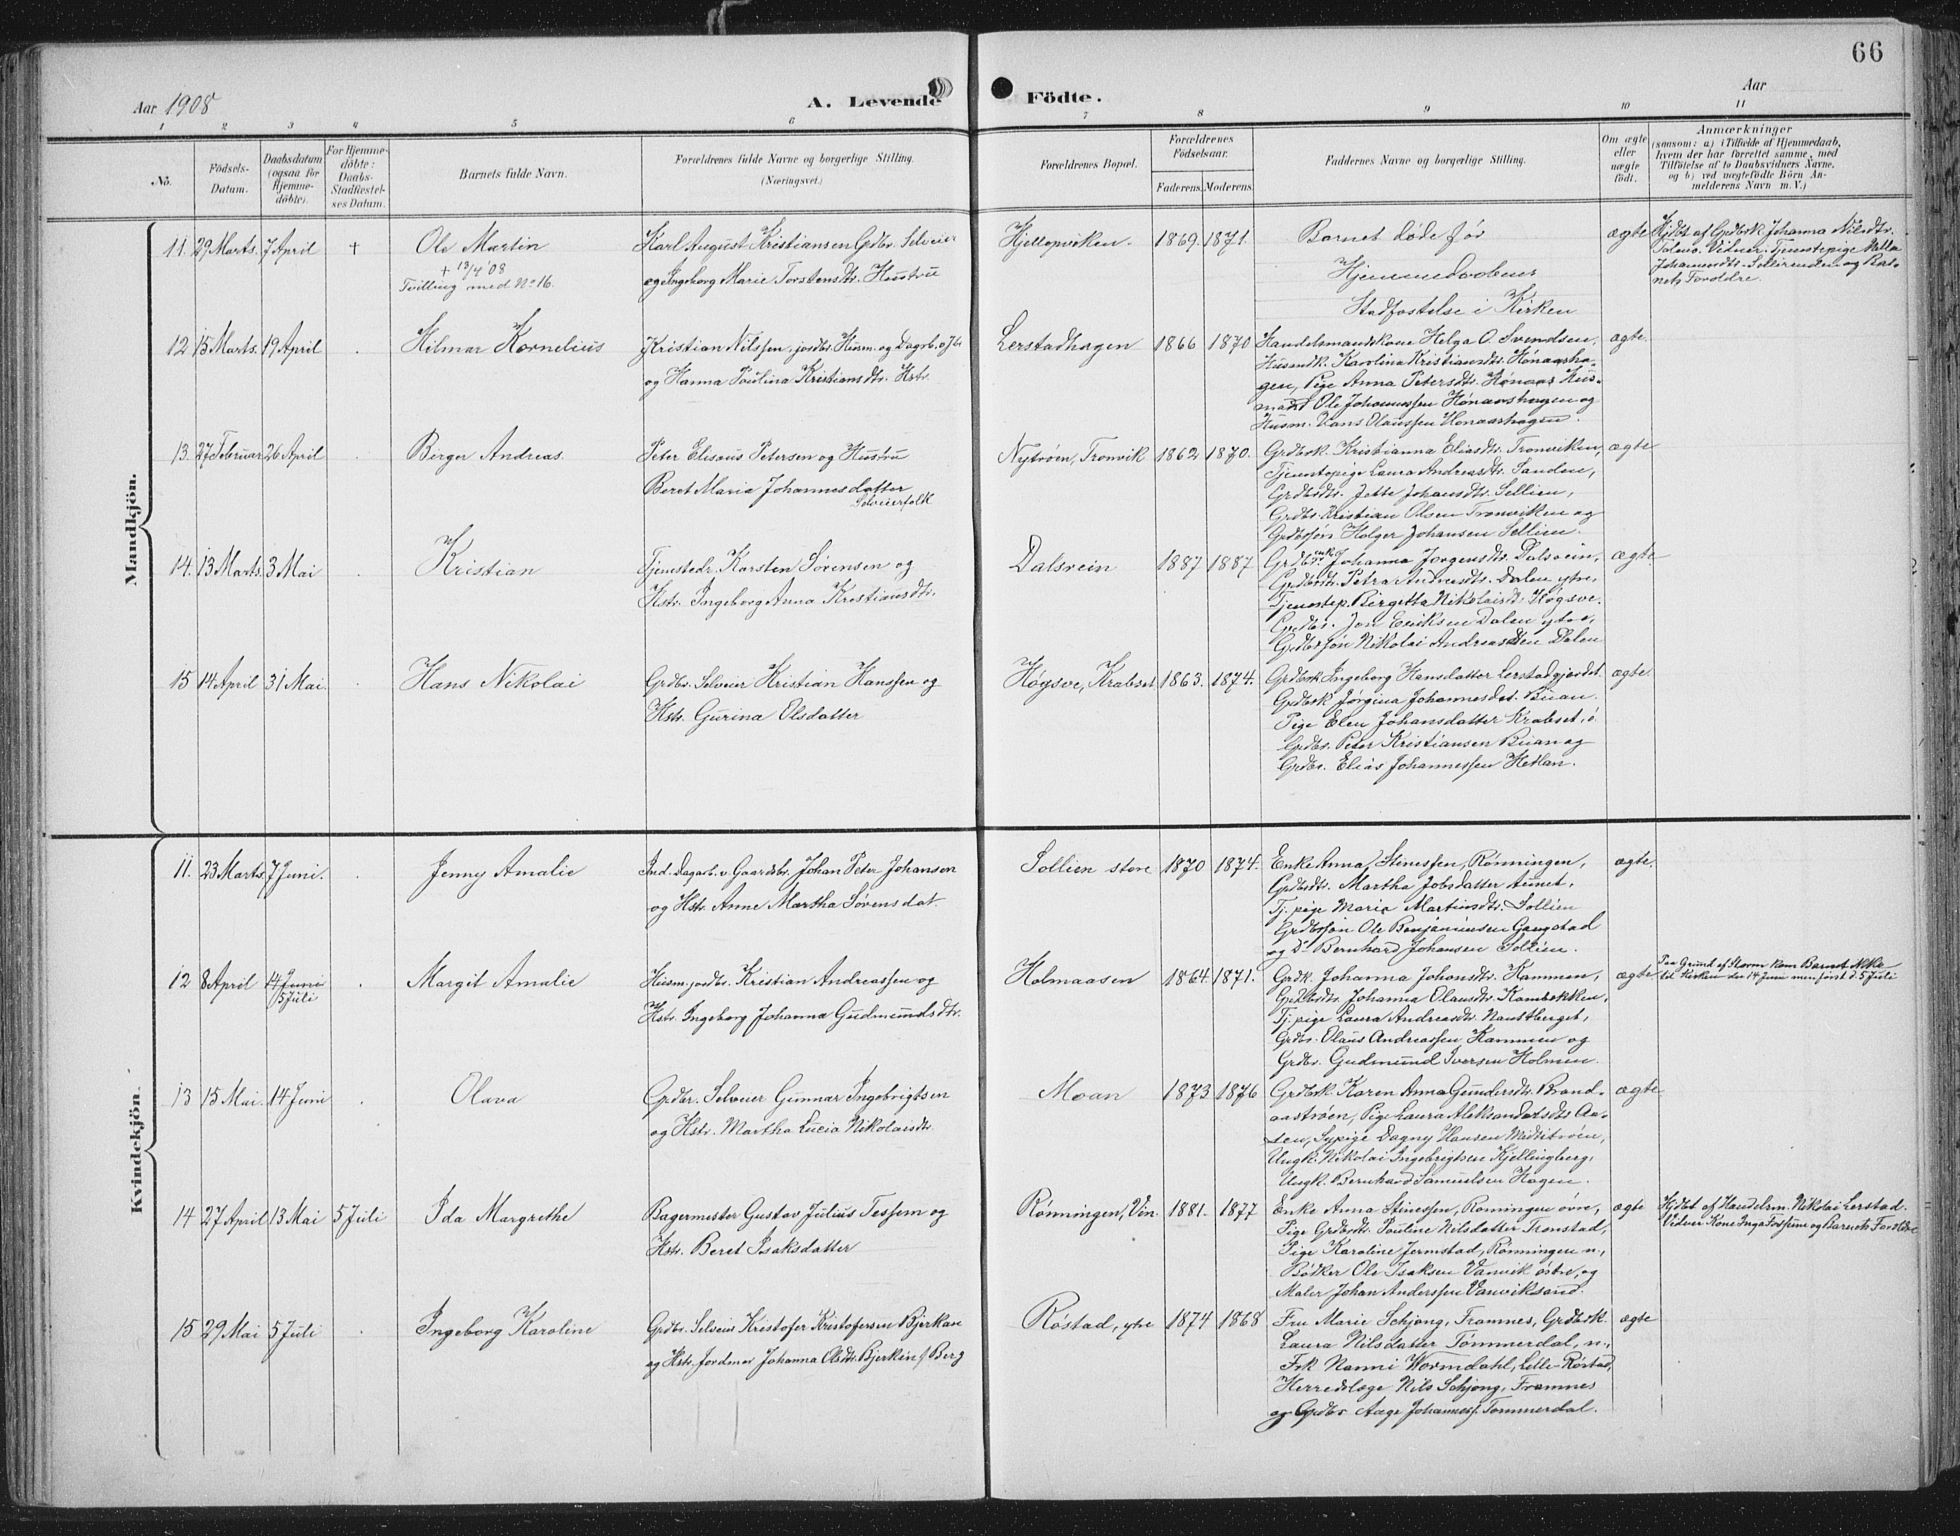 66
Aar 1908
A. Levende Födte.
Aar
1 2 3 4 5 6 7 8 9 10 11
No.
Födsels-
Datum.
Daabsdatum
(ogsaa for
Hjemme-
döbte).
For Hjemme-
döbte:
Daabs-
Stadfæstel-
ses Datum.
Barnets fulde Navn.
Forældrenes fulde Navne og borgerlige Stilling.
(Næringsvei.)
Forældrenes Bopæl.
Forældrenes
Födselsaar.
Faderens. Moderens.
Faddernes Navne og borgerlige Stilling.
Om ægte
eller
uægte
födt.
Anmærkninger
(saasom: a) i Tilfælde af Hjemmedaab,
hvem der har forrettet samme, med
Tilföielse af to Daabsvidners Navne,
og b) ved uægtefödte Börn An-
melderens Navn m. V.)
Mandkjön.
11. 29 Marts. 7 April + Ole Martin
+ 13/4 08
Tvilling med No 16.
Karl August Kristiansen Grdbr. Selveier
og Ingeborg Marie Torstensdtr. Hustru
Hjellupviken. 1869. 1871.
Barnet döde før
Hjemmedaabens
Stadfæstelse i Kirken
ægte
Hjdbt af Grdbrk Johanna Nilsdtr.
Vidner: Tjenestepige
Johannesdtr. Sellirenden og Bar-
nets Forældre.
12 15 Marts. 19 April Hilmar Kornelius
Kristian Nilssen, jordbr. Husm. og Dagarb.
og Hanna Paulina Kristiansdtr. Hstr.
Lerstadhagen 1866 1870
Handelsmandskone Helga O. Svendsen,
Husmdk. Karolina Kristiansdtr. Hönaasha-
gen, Pige Anna Petersdtr. Hönaas Hus-
mand Ole Johannessen Hönaashagen og
Husm. Hans Olaussen Hönaashagen.
ægte.
13. 27 Februar 26 April Berger Andreas.
Peter Elisæus Petersen og Hustru
Beret Maria Johannesdatter
Selveierfolk
Nytrøen, Tronvik 1862 1870.
Grdbrk. Kristianna Eliasdtr. Tronviken,
Tjenestepige Laura Andreasdtr. Sandene,
Grdbrdtr. Jette Johansdtr. Sellien,
Grdbr. Kristian Olsen Tronviken og
Grdbrsøn Holger Johansen Sellien.
ægte
14. 13 Marts. 3 Mai Kristian
Tjenestedr. Karsten Sørensen og
Hstr. Ingeborg Anna Kristiansdtr.
Dalsvein 1887 1887
Grdbrenk. Johanna Jorgensdtr. Dalsvein,
Grdbrdtr. Petra Andreasdtr. Dalen ytre,
Tjenestep. Birgitta Nikolaisdtr. Høgsve.
Grdbr. Jon Eriksen Dalen ytre,
Grdbrsøn Nikolai Andreassen Dalen
ægte
15 14 April 31 Mai. Hans Nikolai
Grdbr. Selveier Kristian Hanssen og
Hstr. Gurina Olsdatter
Høgsve, Krabset 1863. 1874.
Grdbrk Ingeborg Hansdatter Lerstadgjerdet
Grdbrk Jørgina Johannesdat. Buan.
Pige Elen Johansdatter Krabset, i.
Grdbr. Peter Kristiansen Buan og
Grdbr. Elias Johannessen Hetlan.
ægte.
Kvindekjön.
11. 23 Marts. 7 Juni. Jenny Amalie
Ind. Dagarb. v. Gaardsbr. Johan Peter Johansen
og Hstr. Anne Martha Sørensdat.
Sollien store 1870 1874.
Enke Anna Stinessen, Rønningen,
Grdbrdtr. Martha Jobsdatter Aunet,
Tj. pige Maria Martinsdtr. Sollien
Grdbrsøn Ole Benjaminsen Gangstad
og Do Bernhard Johansen Sollien.
ægte.
12 8 April 14 Juni
5 Juli
Margit Amalie
Husm. jordbr. Kristian Andreassen og
Hstr. Ingeborg Johanna Gudmundsdtr.
Holmaasen 1864. 1871.
Grdk. Johanna Johansdtr. Kammen,
Grdbrdtr. Johanna Olausdtr. Kambekken,
Tj. pige Laura Andreasdtr. Naustberget,
Grdbr. Olaus Andreassen Kammen og
Grdbr. Gudmund Iversen Holmen.
ægte.
Paa Grund af Storm kom Barnet ikke
til Kirken den 14 Juni men först d. 5 Juli
13 15 Mai. 14 Juni Olava
Grdbr. Selveier Gunnar Ingebrigtsen
og Hstr. Martha Lucia Nikolaisdtr.
Moan 1873 1876
Grdbrk Karen Anna Gundersdtr. Brand-
aastrøen, Pige Laura Aleksandersdtr. Aa-
sen, Sypige Dagny Hansen Midtitrøen,
Ungk. Nikolai Ingebrigtsen Kjellingberg,
Ungk. Bernhard Samuelsen Hagen.
ægte
14 27 April 13 Mai 5 Juli Ida Margrethe
Bagermester Gustav Julius Tessem og
Hstr. Beret Isaksdatter
Rønningen, Vin. 1881. 1877
Enke Anna Stinessen, Rønningen øvre,
Pige Grdbrdtr. Pauline Nilsdatter Tronstad,
Pige Karoline Jermstad, Rønningen n.,
Bødker Ole Isaksen Vanvik østre, og
Maler Johan Anderssen Vanviksand.
ægte
Hjdbt af Handelsm. Nikolai Lerstad.
Vidner Kone Inga Fossum og Barnets Forældre
15 29 Mai 5 Juli Ingeborg Karoline
Grdbr. Selveier Kristofer Kristofersen Bjerkan
og Hstr. Jordmor Johanna Olsdtr. Bjerkan f. Berg
Røstad, ytre 1874 1868
Fru Marie Schjong, Framnes, Grdbrk.
Laura Nilsdatter Tømmerdal, n.,
Frk Nanni Wormdahl, Lille-Røstad,
Herredslæge Nils Schjong, Framnes
og Grdbr Aage Johannesf. Tømmerdal.
ægte